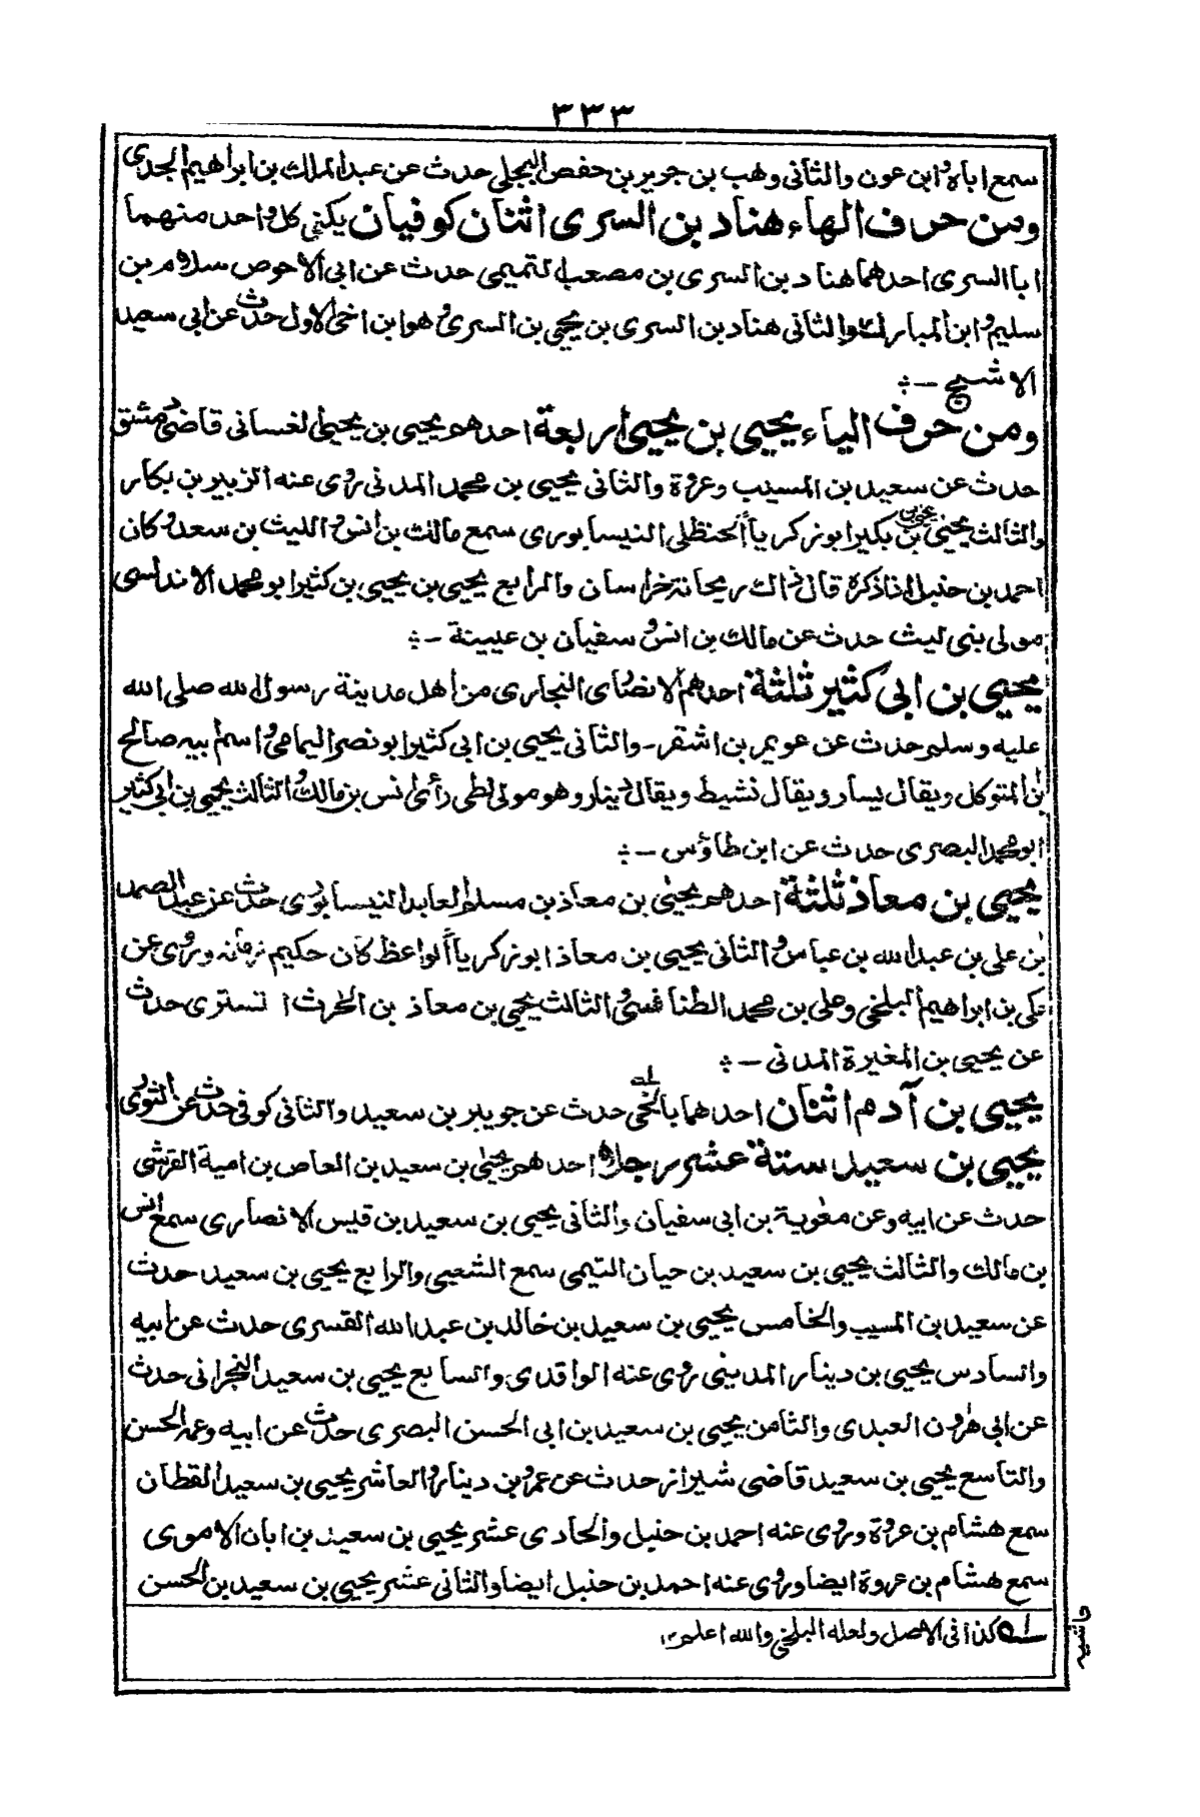 ٣٣٣
سمع اباه وابن عون والثانى وهب بن جرير بن حفص البجلى حدث عن عبد الملك بن ابراهيم الجدى
ومن حرف الهاء هناد بن السرى اثنان كوفيان يكنى كل واحد منهما
ابا السرى احدهما هناد بن السرى بن مصعب التميمى حدث عن ابى الاحوص سلام بن
سليم وابن المبارك والثانى هناد بن السرى بن يحيى بن السرى وهو ابن اخى الاول حدث عن ابى سعيد
الاشج -:
ومن حرف الياء يحيى بن يحيى اربعة احدهم يحيى بن يحيى الغسانى قاضى دمشق
حدث عن سعيد بن المسيب وعروة والثانى يحيى بن محمد المدنى روى عنه الزبير بن بكار
والثالث يحيى بن يحيى بن بكير ابو زكريا الحنظلى النيسابورى سمع مالك بن انس والليث بن سعد وكان
احمد بن حنبل اذا ذكره قال ذاك ريحانة خراسان والرابع يحيى بن يحيى بن كثير ابو محمد الاندلسى
مولى بنى ليث حدث عن مالك بن انس وسفيان بن عيينة -:
يحيى بن ابى كثير ثلثة احدهم الانصارى النجارى من اهل مدينة رسول الله صلى الله
عليه وسلم حدث عن عويمر بن اشقر - والثانى يحيى بن ابى كثير ابو نصر اليمامى واسم ابيه صالح
بن المتوكل ويقال يسار ويقال نشيط ويقال دينار وهو مولى لطى رأى انس بن مالك والثالث يحيى بن ابى كثير
ابو محمد البصرى حدث عن ابن طاؤس -:
يحيى بن معاذ ثلثة احدهم يحيى بن معاذ بن مسلم العابد النيسابورى حدث عن عبد الصمد
بن على بن عبد الله بن عباس والثانى يحيى بن معاذ ابو زكريا الواعظ كان حكيم زمانه وروى عن
مكى بن ابراهيم البلخى وعلى بن محمد الطنافسى والثالث يحيى بن معاذ بن الحرث التسترى حدث
عن يحيى بن المغيرة المدنى -:
يحيى بن آدم اثنان احدهما بالخى له حدث عن جويبر بن سعيد والثانى كوفى حدث عن الثورى
يحيى بن سعيد ستة عشر رجلا احدهم يحيى بن سعيد بن العاص بن امية القرشى
حدث عن ابيه وعن معوية بن ابى سفيان والثانى يحيى بن سعيد بن قيس الانصارى سمع انس
بن مالك والثالث يحيى بن سعيد بن حيان التيمى سمع الشعبى والرابع يحيى بن سعيد حدث
عن سعيد بن المسيب والخامس يحيى بن سعيد بن خالد بن عبد الله القسرى حدث عن ابيه
والسادس يحيى بن دينار المدينى روى عنه الواقدى والسابع يحيى بن سعيد النجرانى حدث
عن ابى هرون العبدى والثامن يحيى بن سعيد بن ابى الحسن البصرى حدث عن ابيه وعمه الحسن
والتاسع يحيى بن سعيد قاضى شيراز حدث عن عمرو بن دينار والعاشر يحيى بن سعيد القطان
سمع هشام بن عروة وروى عنه احمد بن حنبل والحادى عشر يحيى بن سعيد بن ابان الاموى
سمع هشام بن عروة ايضا وروى عنه احمد بن حنبل ايضا والثانى عشر يحيى بن سعيد بن الحسن
له كذا فى الاصل ولعله البلخى والله اعلم ١٢
حاشية